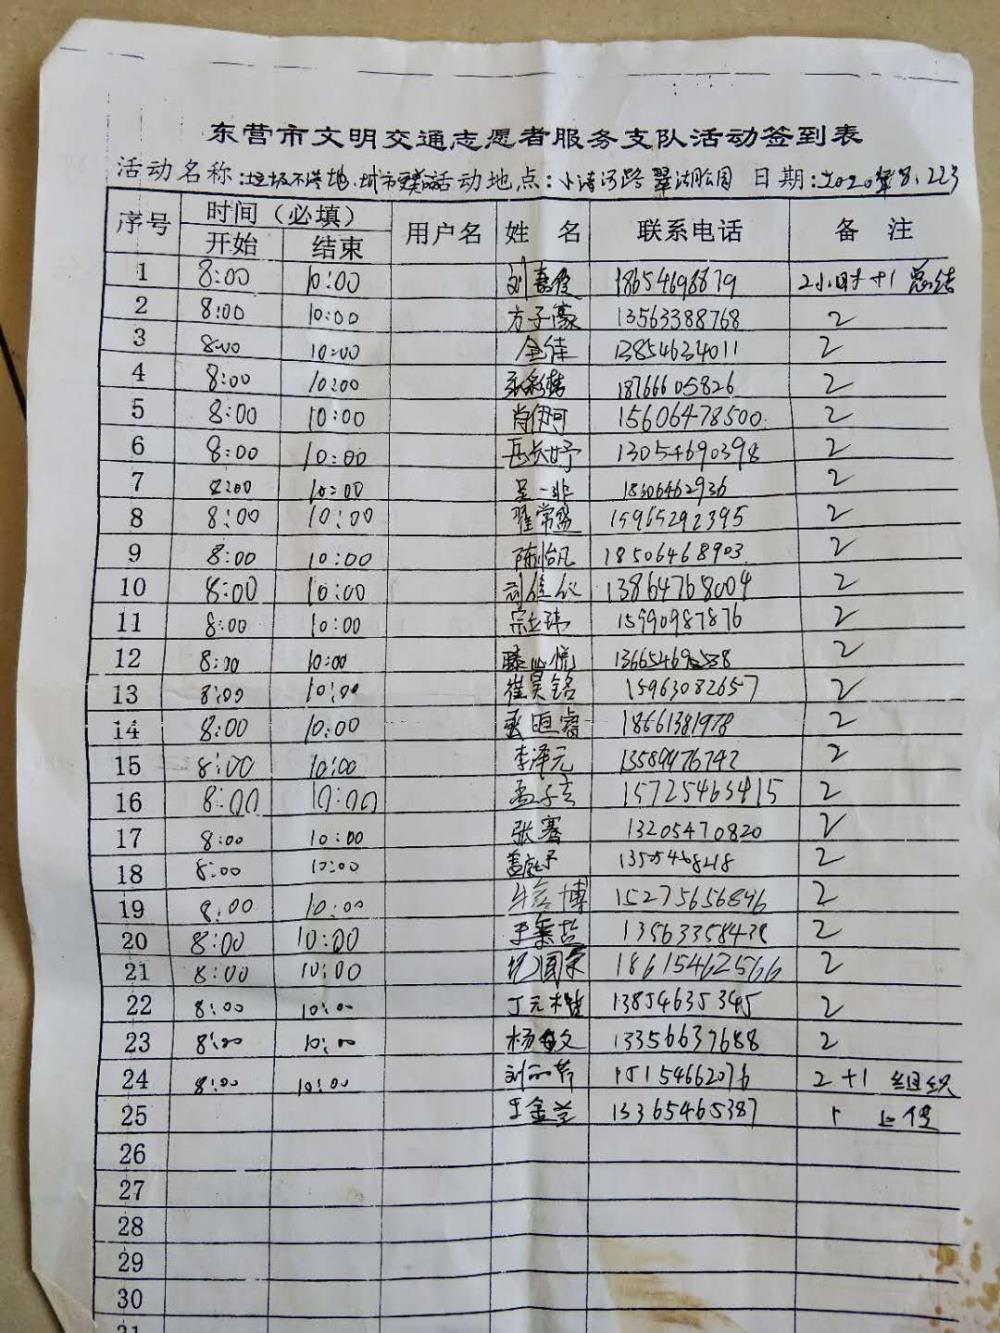 东营市文明交通志愿者服务支队活动签到表
活动名称:垃圾不落地.城市更美丽 活动地点:小清河路翠湖公园 日期:2020年8.223
序号 时间（必填） 用户名 姓 名 联系电话 备 注
开始 结束
1 8:00 10:00 刘嘉俊 18654698879 2小时+1 总结
2 8:00 10:00 方子豪 13563388768 2
3 8:00 10:00 金佳 13854634011 2
4 8:00 10:00 18766605826 2
5 8:00 10:00 肖伊可 15606478500 2
6 8:00 10:00 13054690398 2
7 8:00 10:00 吴一非 18306462936 2
8 8:00 10:00 翟常盛 15965292395 2
9 8:00 10:00 陈怡凡 18506468903 2
10 8:00 10:00 刘佳仪 13864768004 2
11 8:00 10:00 宗立玮 15990987876 2
12 8:00 10:00 滕心悦 2
13 8:00 10:00 崔昊铭 15963082657 2
14 8:00 10:00 18661381978 2
15 8:00 10:00 李泽元 13589976742 2
16 8:00 10:00 孟子言 15725463415 2
17 8:00 10:00 张骞 13205470820 2
18 8:00 10:00 2
19 8:00 10:00 博 15275656896 2
20 8:00 10:00 2
21 8:00 10:00 18615462566 2
22 8:00 10:00 丁元 13854635345 2
23 8:00 10:00 杨 文 13356637688 2
24 8:00 10:00 刘 芹 15154662076 2+1 组织
25 王金兰 13365465387 1 上传
26
27
28
29
30
31